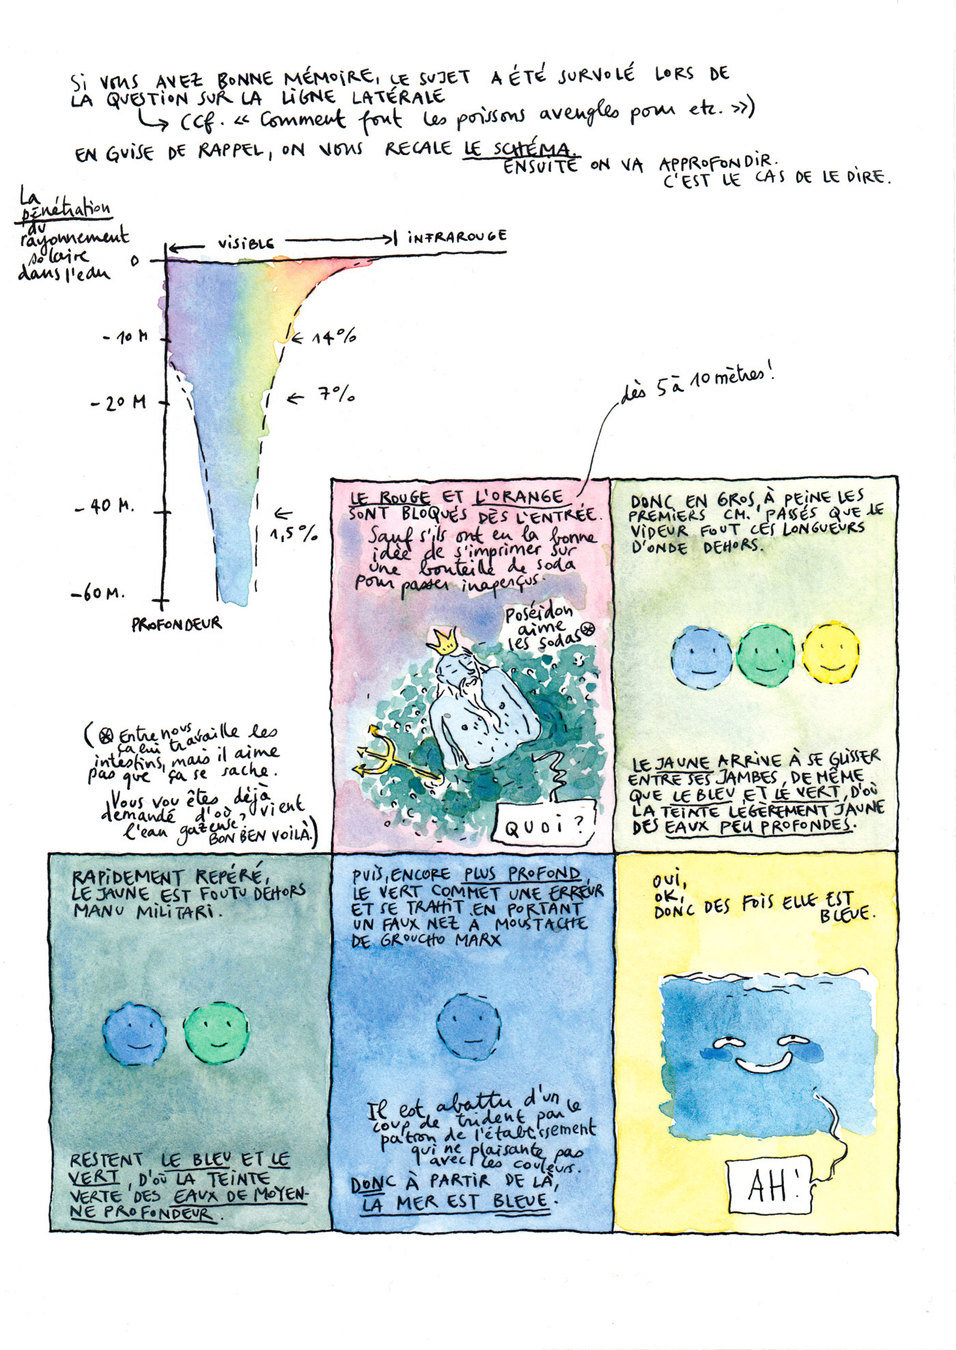 SI VOUS AVEZ BONNE MÉMOIRE, LE SUJET A ÉTÉ SURVOLÉ LORS DE
LA QUESTION SUR LA LIGNE LATÉRALE
(Cf. « Comment font les poissons aveugles pour etc. »)
EN GUISE DE RAPPEL, ON VOUS RECALE LE SCHÉMA.
ENSUITE ON VA APPROFONDIR.
C'EST LE CAS DE LE DIRE.
La
pénétration
du
rayonnement
solaire
dans l'eau
VISIBLE
INFRAROUGE
0
-10 M
14%
-20 M
7%
-40 M.
1,5%
-60 M.
PROFONDEUR
dès 5 à 10 mètres!
LE ROUGE ET L'ORANGE
SONT BLOQUÉS DÈS L'ENTRÉE.
Sauf s'ils ont eu la bonne
idée de s'imprimer sur
une bouteille de soda
pour passer inaperçus.
Poséidon
aime
les sodas⊛
QUOI ?
(⊛ Entre nous,
ça lui travaille les
intestins, mais il aime
pas que ça se sache.
Vous vou êtes déjà
demandé d'où vient
l'eau gazeuse.
BON BEN VOILÀ.)
DONC EN GROS, À PEINE LES
PREMIERS CM. PASSÉS QUE LE
VIDEUR FOUT CES LONGUEURS
D'ONDE DEHORS.
LE JAUNE ARRIVE À SE GLISSER
ENTRE SES JAMBES, DE MÊME
QUE LE BLEU ET LE VERT, D'OÙ
LA TEINTE LÉGÈREMENT JAUNE
DES EAUX PEU PROFONDES.
RAPIDEMENT REPÉRÉ,
LE JAUNE EST FOUTU DEHORS
MANU MILITARI.
RESTENT LE BLEU ET LE
VERT, D'OÙ LA TEINTE
VERTE DES EAUX DE MOYEN-
NE PROFONDEUR.
PUIS, ENCORE PLUS PROFOND
LE VERT COMMET UNE ERREUR
ET SE TRAHIT EN PORTANT
UN FAUX NEZ À MOUSTACHE
DE GROUCHO MARX
Il est abattu d'un
coup de trident par le
patron de l'établissement
qui ne plaisante pas
avec les couleurs.
DONC À PARTIR DE LÀ,
LA MER EST BLEUE.
OUI,
OK,
DONC DES FOIS ELLE EST
BLEUE.
AH!